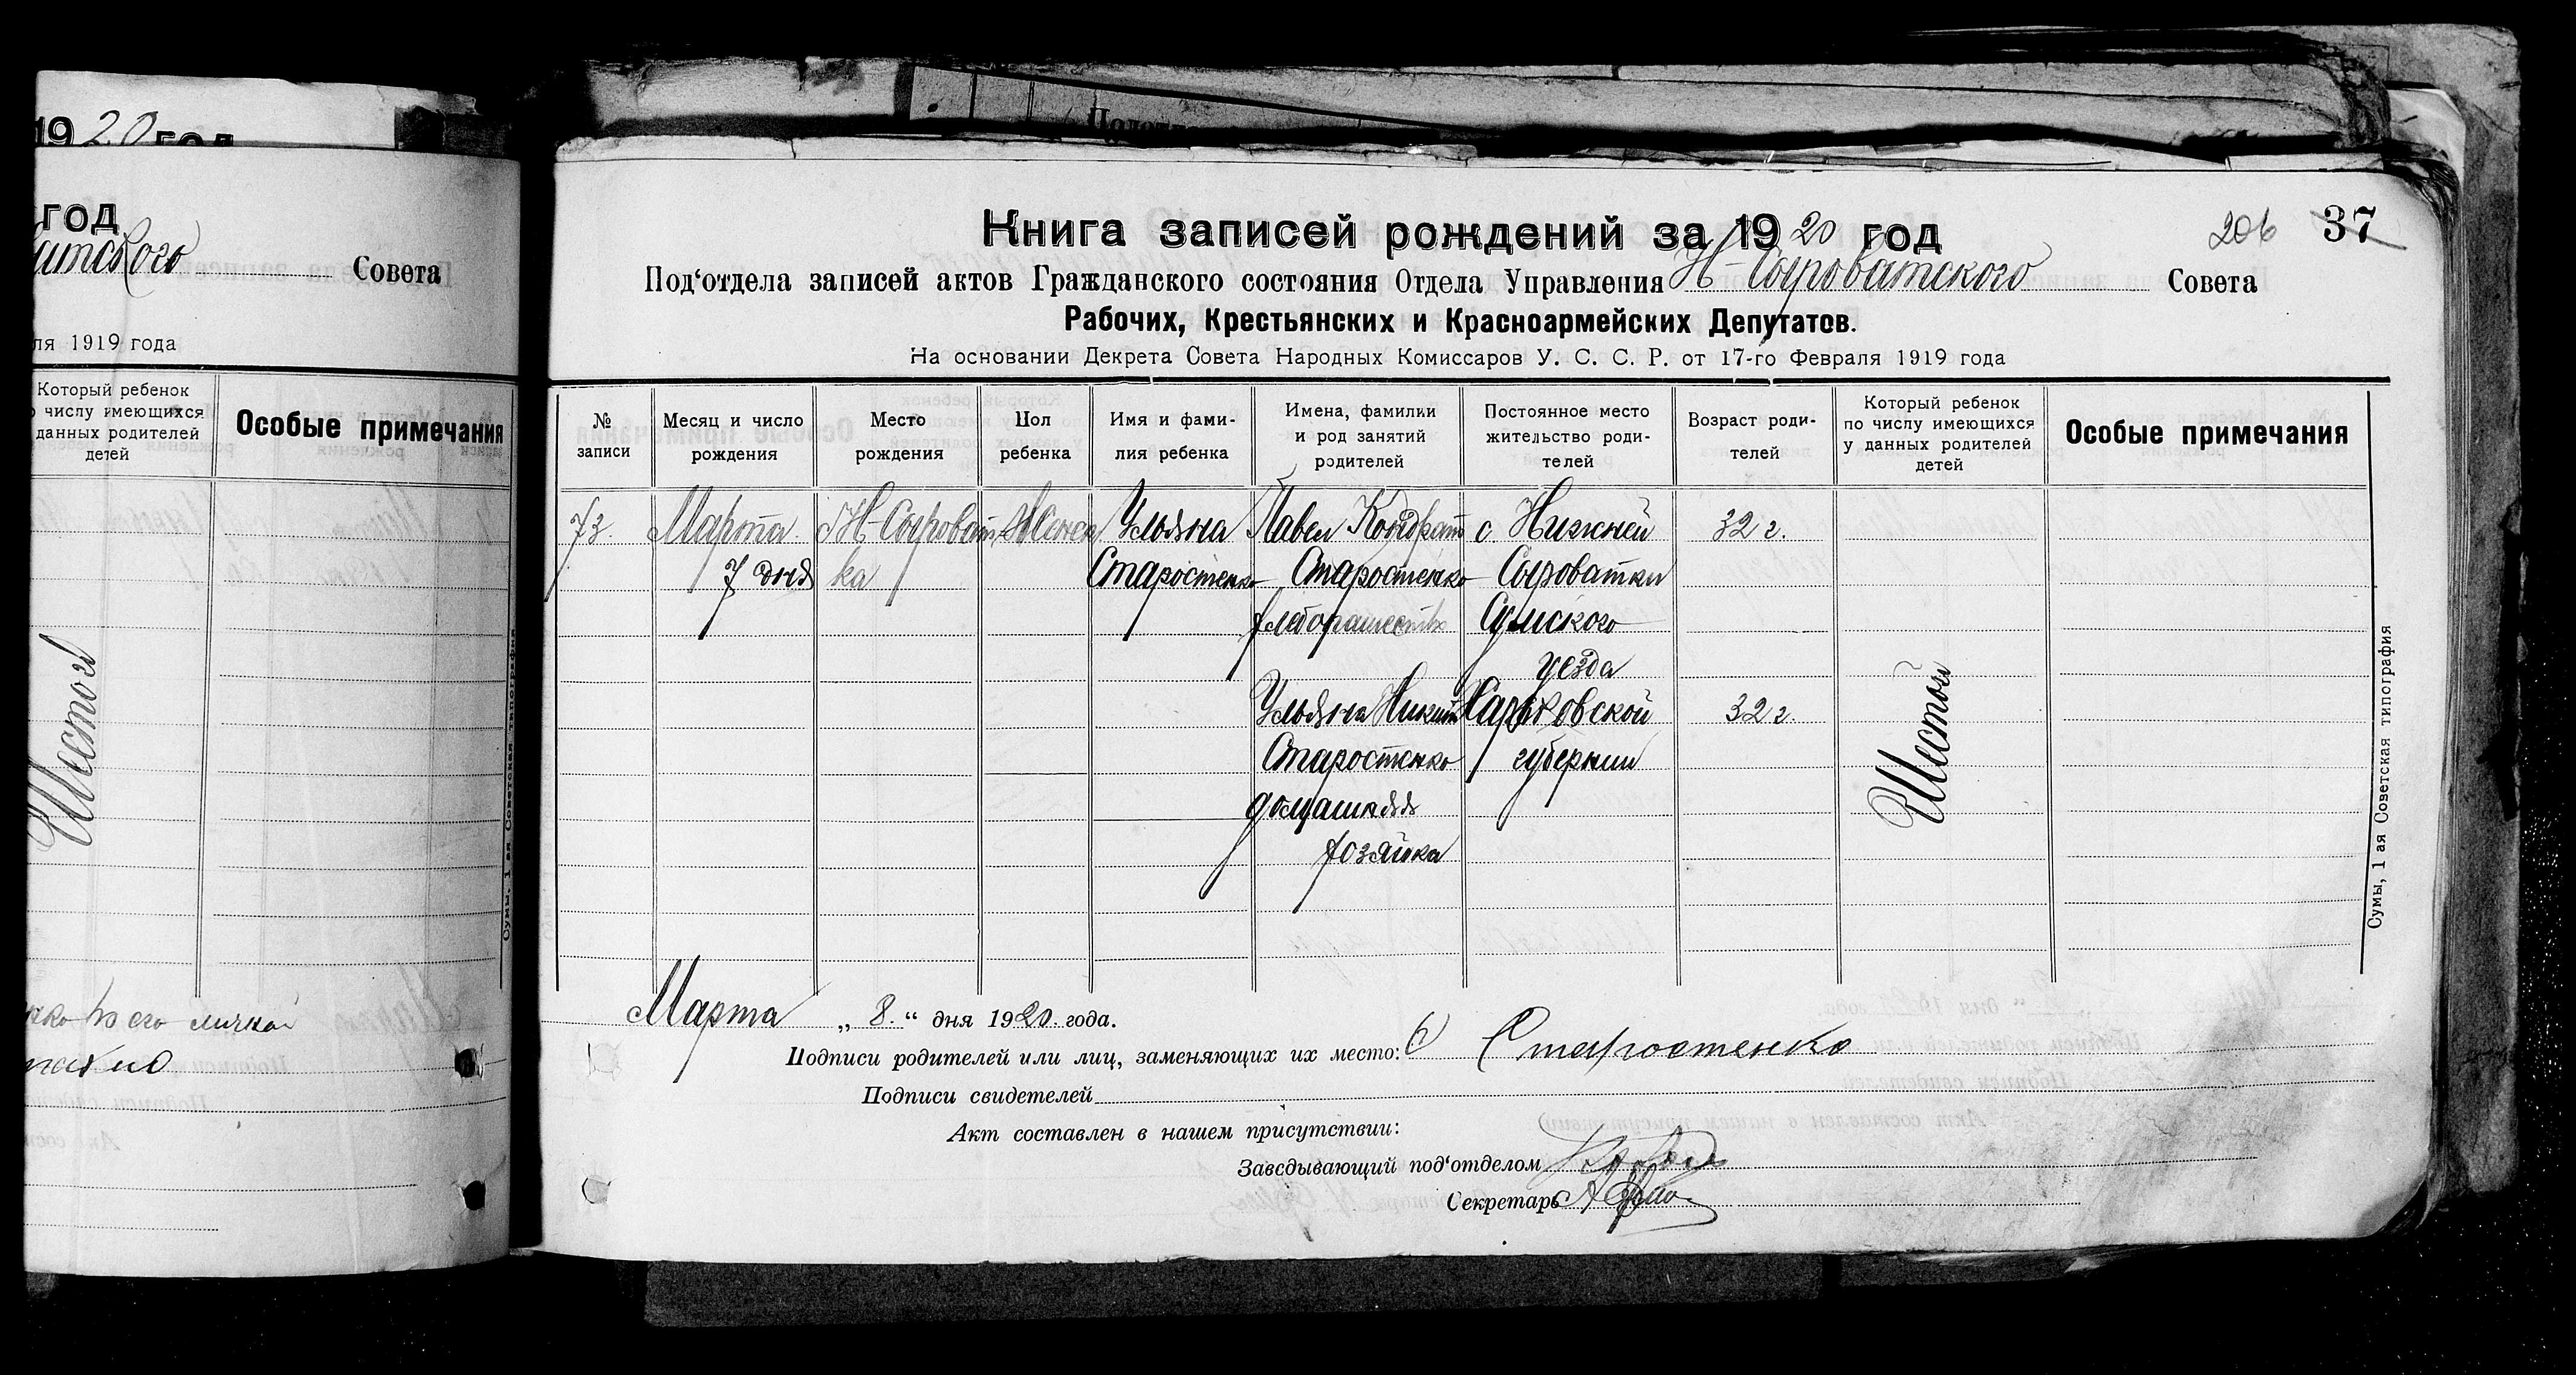 1920 год
год
Совета
ля 1919 года
Который ребенок
о числу имеющихся
данных родителей
детей
Особые примечания
Шестой
его лично
Сумы, 1 ая Советская типография
Книга записей рождений за 1920 год
206 37
Под‘отдела записей актов Гражданского состояния Отдела Управления Н-Сыроватского Совета
Рабочих, Крестьянских и Красноармейских Депутатов.
На основании Декрета Совета Народных Комиссаров У. С. С. Р. от 17-го Февраля 1919 года
№ записи
Месяц и число рождения
Место рождения
Пол ребенка
Имя и фами-
лия ребенка
Имена, фамилии
и род занятий
родителей
Постоянное место
жительство роди-
телей
Возраст роди-
телей
Который ребенок
по числу имеющихся
у данных родителей
детей
Особые примечания
73.
Марта
7 дня
Н-Сыроват
ка
Женск
Ульяна
Старостенко
Павел Кондрат
Старостенко
Ульяна Никит
Старостенко
домашняя
хозяйка
с. Нижней
Сыроватки
Сумского
уезда
Харьковской
губернии
32 г.
32 г.
Шестой
Марта „ 8. “ дня 1920 года.
Подписи родителей или лиц, заменяющих их место: Старостенко
Подписи свидетелей
Акт составлен в нашем присутствии:
Заведывающий под‘отделом
Секретарь
Сумы, 1 ая Советская типография